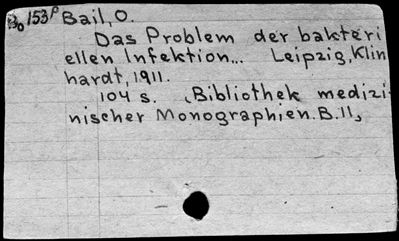 Bo 153p Bail, O.
Das Problem der bakteri
ellen Infektion... Leipzig, Klin
hardt, 1911.
104 s. (Bibliothek medizi-
nischer Monographien. B. 11,